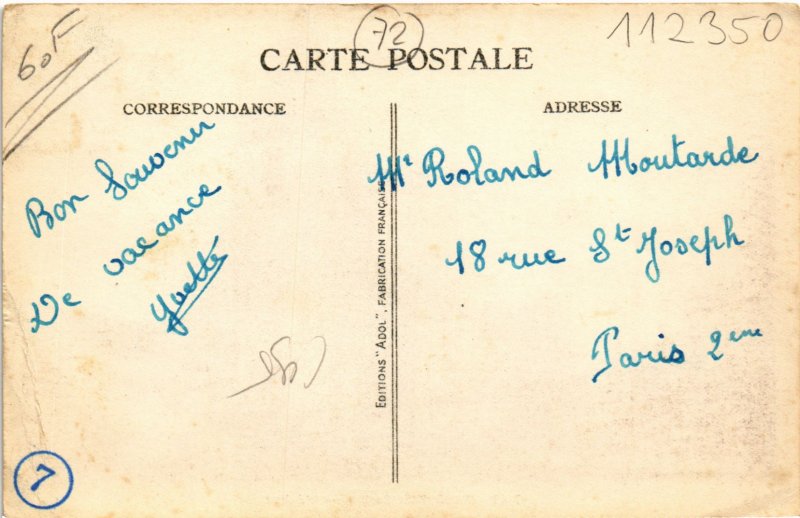 60F
72
112350
CARTE POSTALE
CORRESPONDANCE
ADRESSE
Bon Souvenir
De vacance
Yvette
EDITIONS "ADOL", FABRICATION FRANÇAISE
Mr Roland Moutarde
18 rue St Joseph
Paris 2eme
7